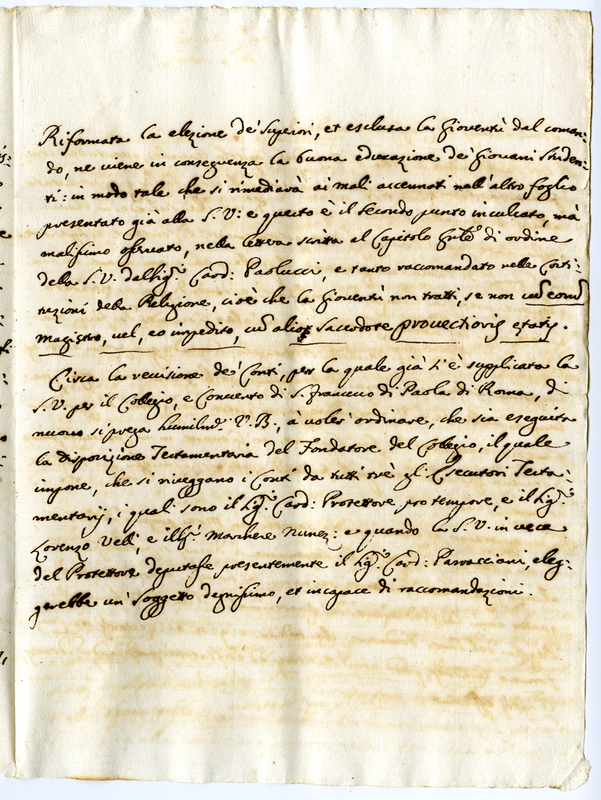 Riformata la elezione de' Superiori, et esclusa la Gioventù dal coman-
do, ne viene in conseguenza la buona educazione de' Giovani Studen-
ti: in modo tale che si rimedierà ai mali accennati nell'altro foglio
presentato già alla S. V: e questo è il secondo punto inculcato, mà
malissimo osservato, nella lettera scritta al Capitolo di ordine
della S. V. dall' Card: Paolucci, e tanto raccomandato nelle Costi-
tuzioni della Religione, cioè che la Gioventù non tratti, se non cum eorum
magistro, vel, eo impedito, cum alio Sacerdote provectioris etatis.
Circa la revisione de' Conti, per la quale già s'è supplicata la
S. V. per il Collegio, e Convento di S. Francesco di Paola di Roma, di
nuovo si prega V. B:, à voler ordinare, che sia eseguita
la Disposizione Testamentaria del Fondatore del Collegio, il quale
impone, che si riveggano i Conti da tutti trè gl' Esecutori Testa-
mentarij, i quali sono il Sig.r Card: Protettore pro tempore, e il Sig.r
Lorenzo Velli, e Marchese Nunez: e quando la S. V. in vece
del Protettore deputasse presentemente il Sig.r Card: Parracciani, eleg-
gerebbe un Soggetto degnissimo, et incapace di raccomandazioni.